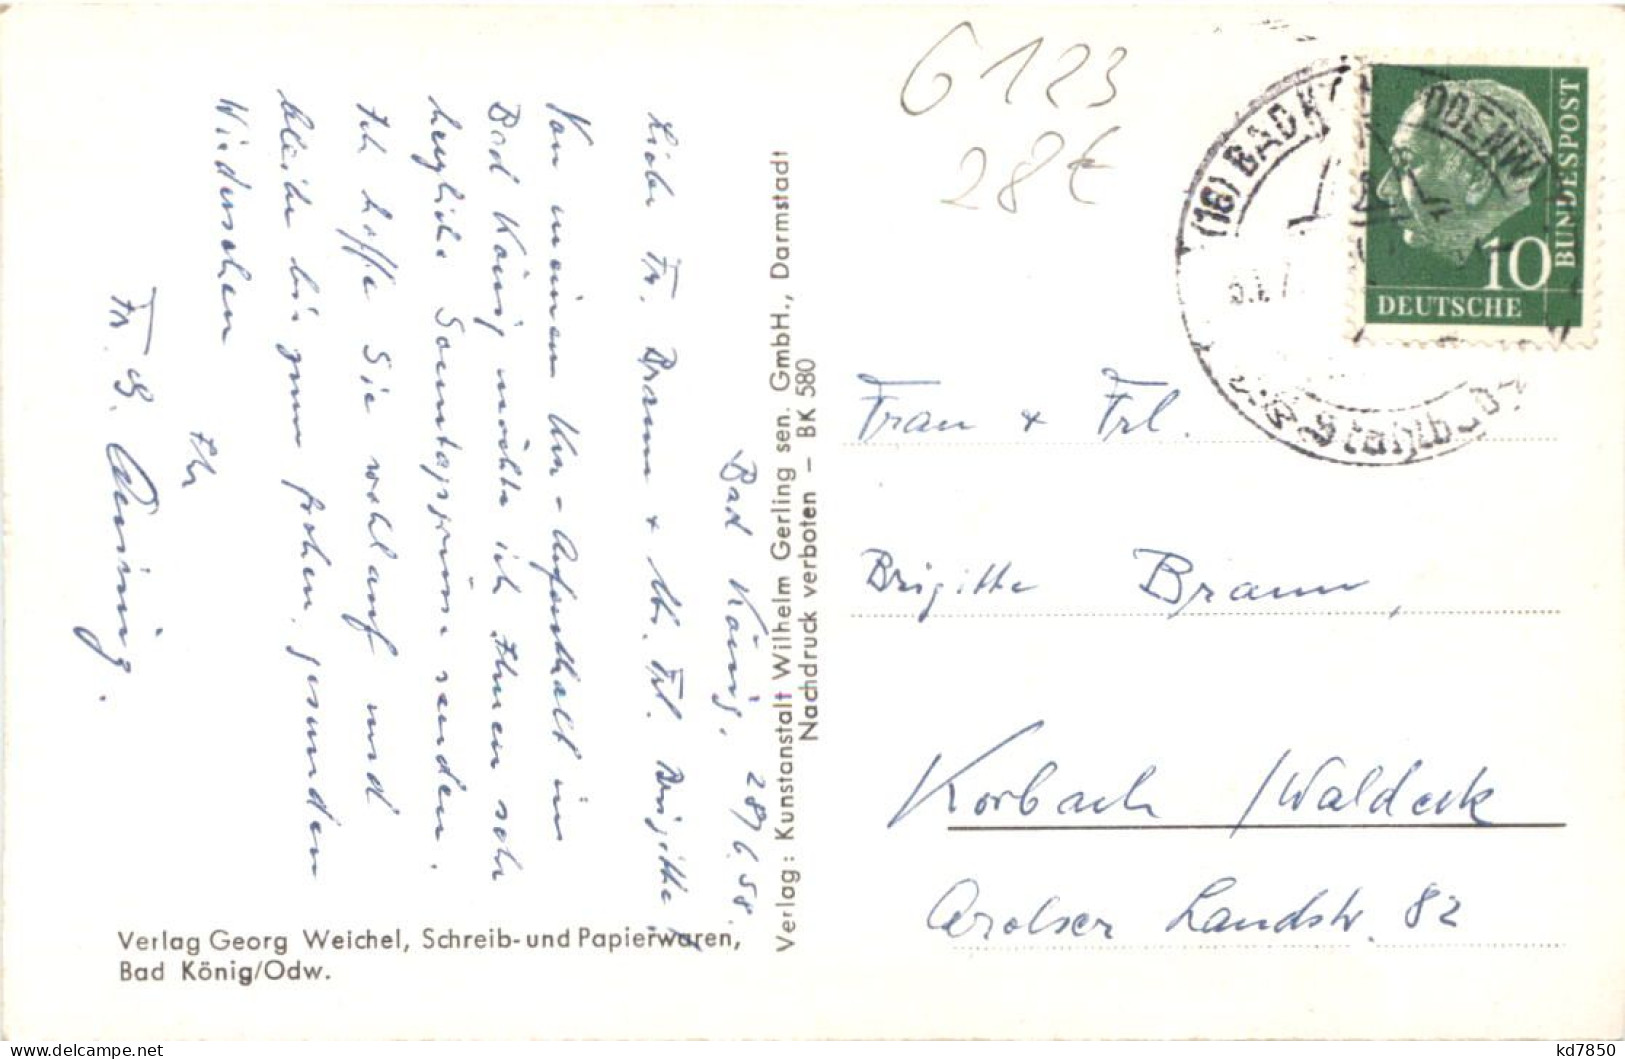 G 123
28€
Bad König, 28/6.58.
Liebe Fr. Braun + lb. Frl. Brigitte!
Von meinem Kur-Aufenthalt in
Bad König möchte ich Ihnen sehr
herzliche Sonntagsgrüße senden.
Ich hoffe Sie wohlauf und
bleibe bis zum frohen, gesunden
Wiedersehen
Ihr
Fr. G.
Verlag Georg Weichel, Schreib- und Papierwaren,
Bad König/Odw.
Verlag: Kunstanstalt Wilhelm Gerling sen. GmbH., Darmstadt
Nachdruck verboten – BK 580
(16) BAD K ODENW
10
DEUTSCHE
BUNDESPOST
Frau + Frl.
Brigitte Braun,
Korbach /Waldeck
Arolser Landstr. 82
www.delcampe.net
kd7850